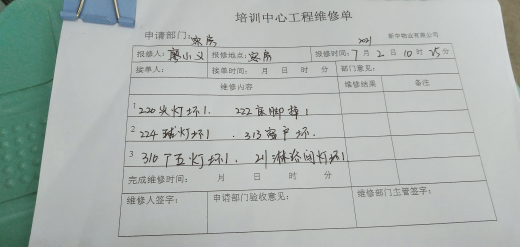 培训中心工程维修单
申请部门：客房 新中物业有限公司
报修人：廖小义 报修地点：客房 报修时间：2021 7月2日10时25分
接单人： 接单时间： 月 日 时 分 部门意见：
维修内容 维修结果 备注
1 220头灯坏1. 222床脚掉1
2 224球灯坏1. 313客户坏.
3 310丁五灯坏1. 211淋浴间灯坏1
完成维修时间： 月 日 时 分
维修人签字： 申请部门验收意见： 维修部门主管签字：